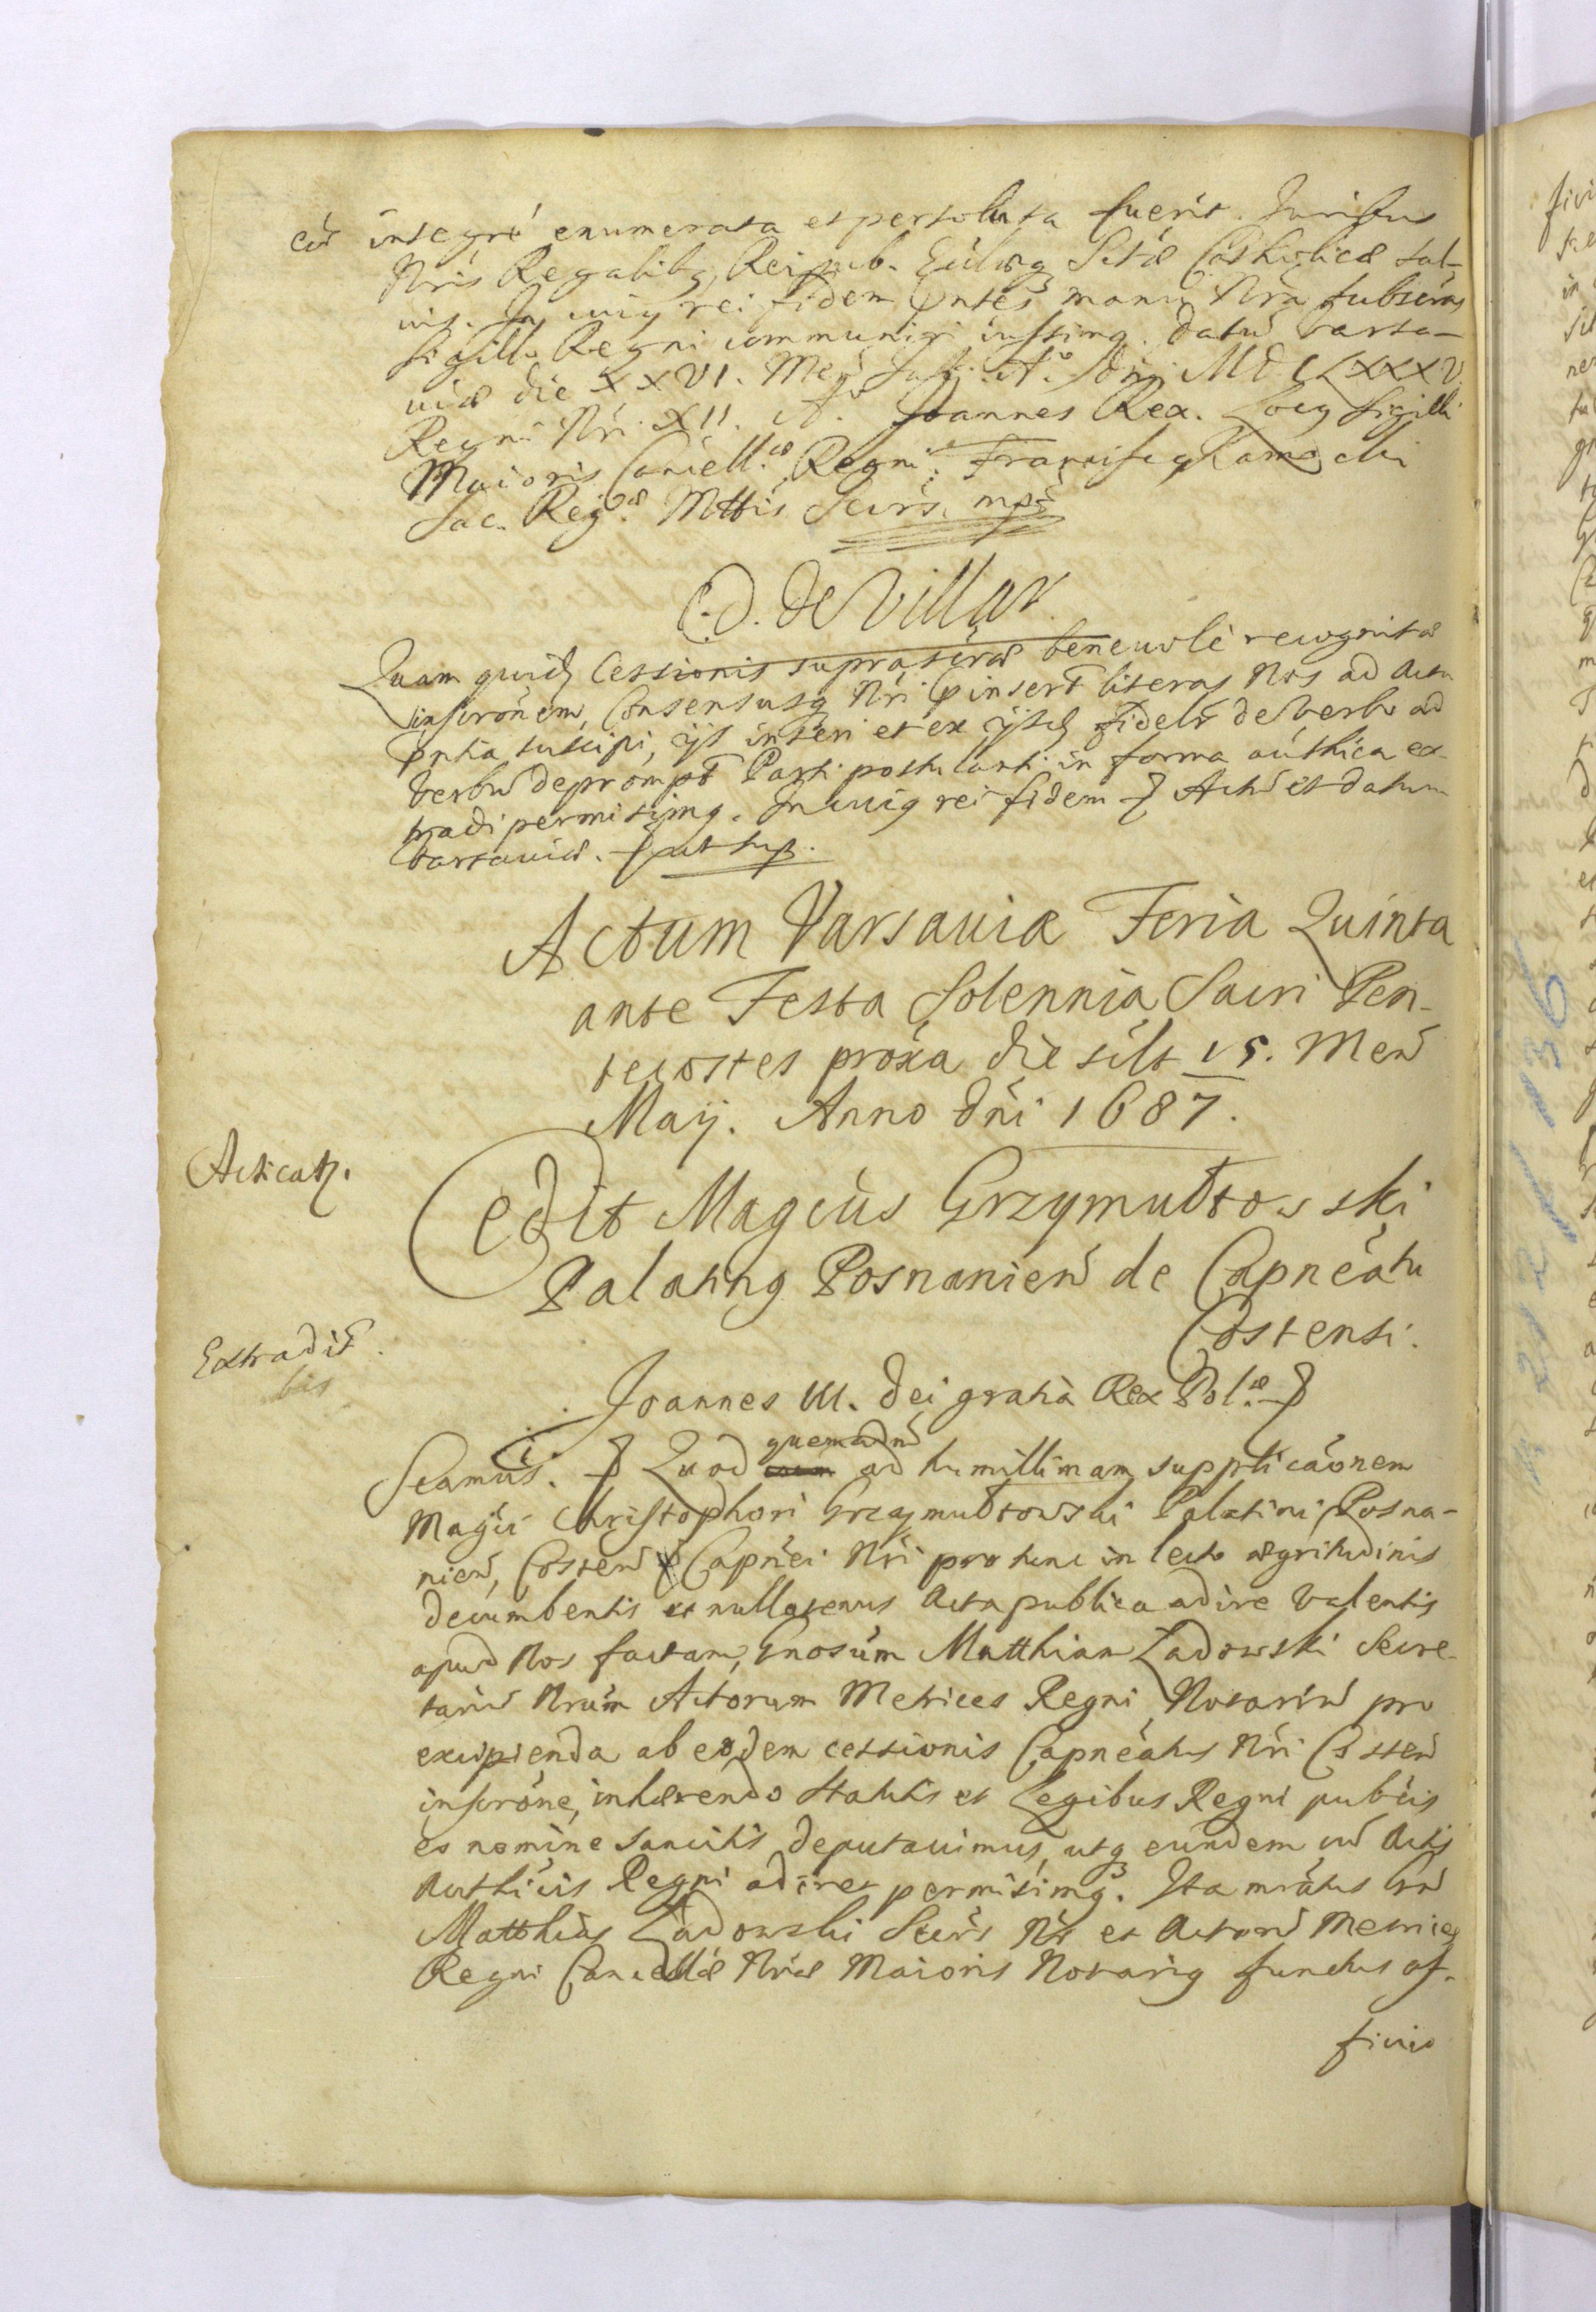 eid integré enumerata et persoluta fuerit. Juribus
Nris Regalibq, Reipub. Eccliaeq Sctae Catholicae sal-
uis. In cuiq rei fidem pntes manu Nra subscras
Sigillo Regni communiri iussimq. Datu Varsa-
uiae die XXVI. Men Julij. Ao. Dni MDCLXXXV.
Regni Nri XII. Ao. Joannes Rex. Locq Sigilli
Maioris Cancell.ae Regni. Franciscq
Sac. Reg.ae Mttis Secrs. mpa
C. D. de Villar
Quam quid Cessionis suprascrae beneuole recognitae
inscronem, Consensusq Nri insert literas Nos ad Acta
pntia suscipi, ijs inseri et ex ijsd fidelr de verbo ad
verbu deprompt Parti postulanti in forma authica ex-
tradi permisimq. In cuiq rei fidem Actu et datum
Varsauiae. ut sup.
Actum Varsauiae Feria Quinta
ante Festa Solennia Sacri Pen-
tecostes proxa die silt 15. Men
Maij. Anno Dni 1687.
Acticatr.
Cedit Magcus Grzymułtowski
Palatinq Posnanien de Capneatu
Costensi.
Extradit.
bis
Joannes III. Dei gratia Rex Pol.ae
Scamus. Quod quemadm ad humillimam supplicaonem
Magci Christophori Grzymułtowski Palatini Posna-
nien, Costen Capnei Nri pro tunc in lecto aegritudinis
decumbentis et nullatenus Acta publica adire valentis
apud Nos factam, Gnosum Matthiam Ladowski Secre-
tariu Nrum Actorum Metrices Regni Notariu pro
excipienda ab eodem cessionis Capneatus Nri Costen
inscrone, inhaerendo Statutis et Legibus Regni publcis
eo nomine sancitis deputauimus, utq eundem cu Actis
Authicis Regni adiret permisimq. Ita mratus Gn
Matthias Ladowski Secrs Nr et Actoru Metrices
Regni Cancellae Nrae Maioris Notariq functus of-
ficio